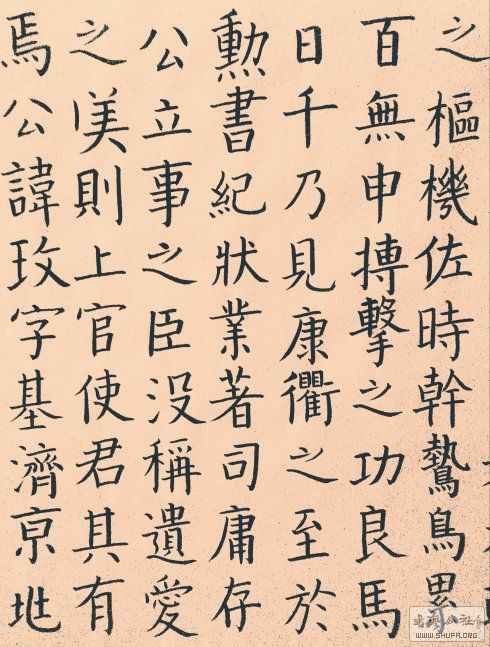 之樞機佐時幹鷙鳥累
百無申搏擊之功良馬
日千乃見康衢之至於
勲書紀狀業著司庸存
公立事之臣没稱遺愛
之美則上官使君其有
焉公諱玫字基濟亰
WWW.SHUFA.ORG